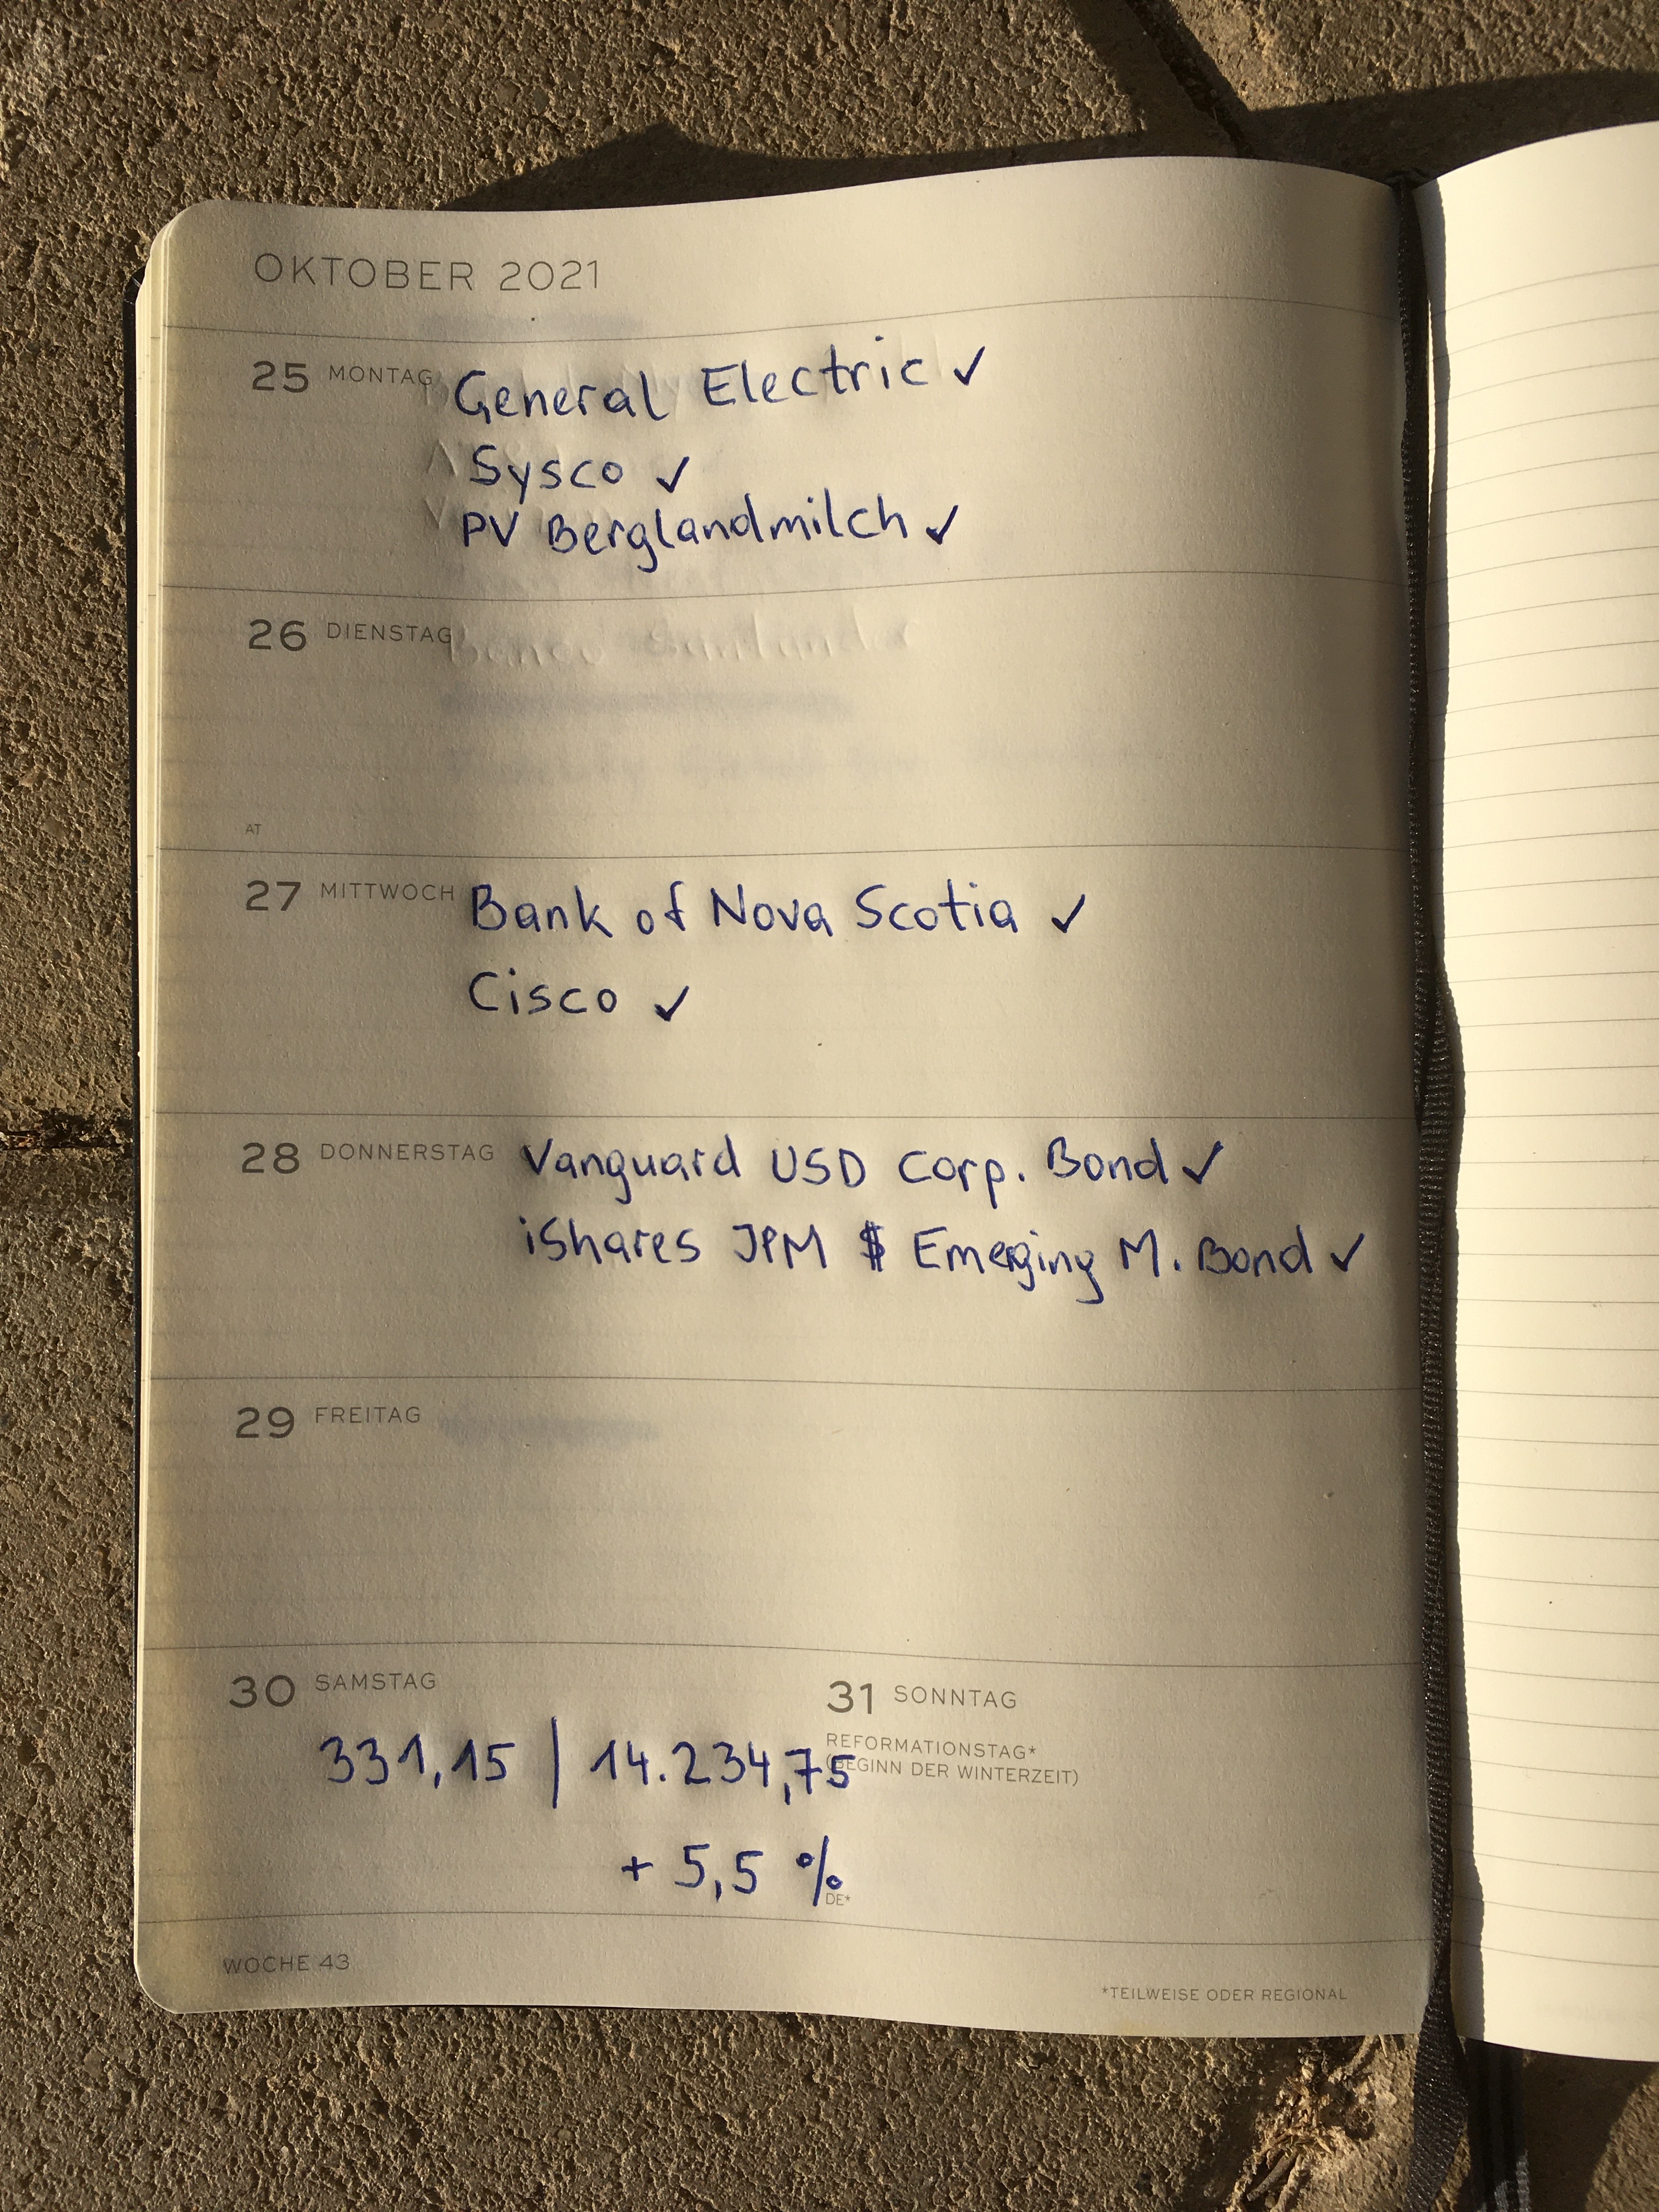 OKTOBER 2021
25 MONTAG General Electric ✓
Sysco ✓
PV Berglandmilch ✓
26 DIENSTAG
AT
27 MITTWOCH Bank of Nova Scotia ✓
Cisco ✓
28 DONNERSTAG Vanguard USD Corp. Bond ✓
iShares JPM $ Emerging M. Bond ✓
29 FREITAG
30 SAMSTAG
331,15 | 14.234,75
+ 5,5 %
31 SONNTAG
REFORMATIONSTAG*
(BEGINN DER WINTERZEIT)
DE*
WOCHE 43
*TEILWEISE ODER REGIONAL